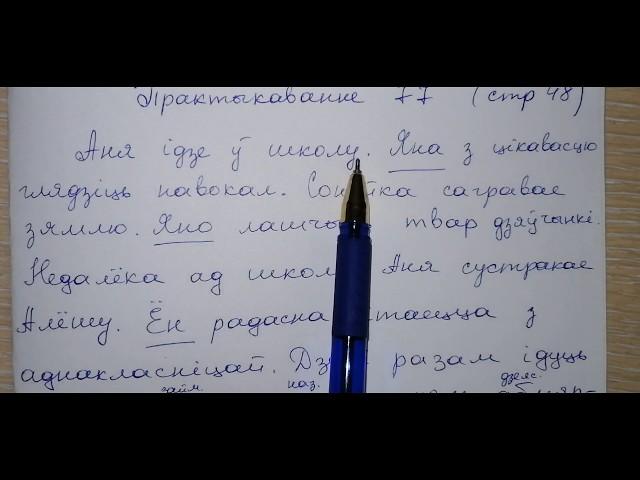 Практыкаванне 77 (стр 48)
Аня ідзе ў школу. Яна з цікавасцю
глядзіць навокал. сагравае
зямлю. Яно твар дзяўчынкі.
Недалёка ад Аня сустракае
Алёшу. Ён радасна з
аднакласніцай. разам ідуць
займ. наз. дзеяс.